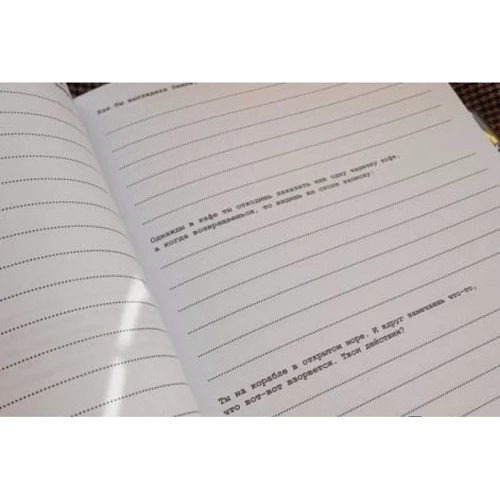 Как бы выглядела Земля
Однажды в кафе ты отходишь заказать еще одну чашечку кофе,
а когда возвращаешься, то видишь на столе записку:
Ты на корабле в открытом море. И вдруг замечаешь что-то,
что вот-вот взорвется. Твои действия?